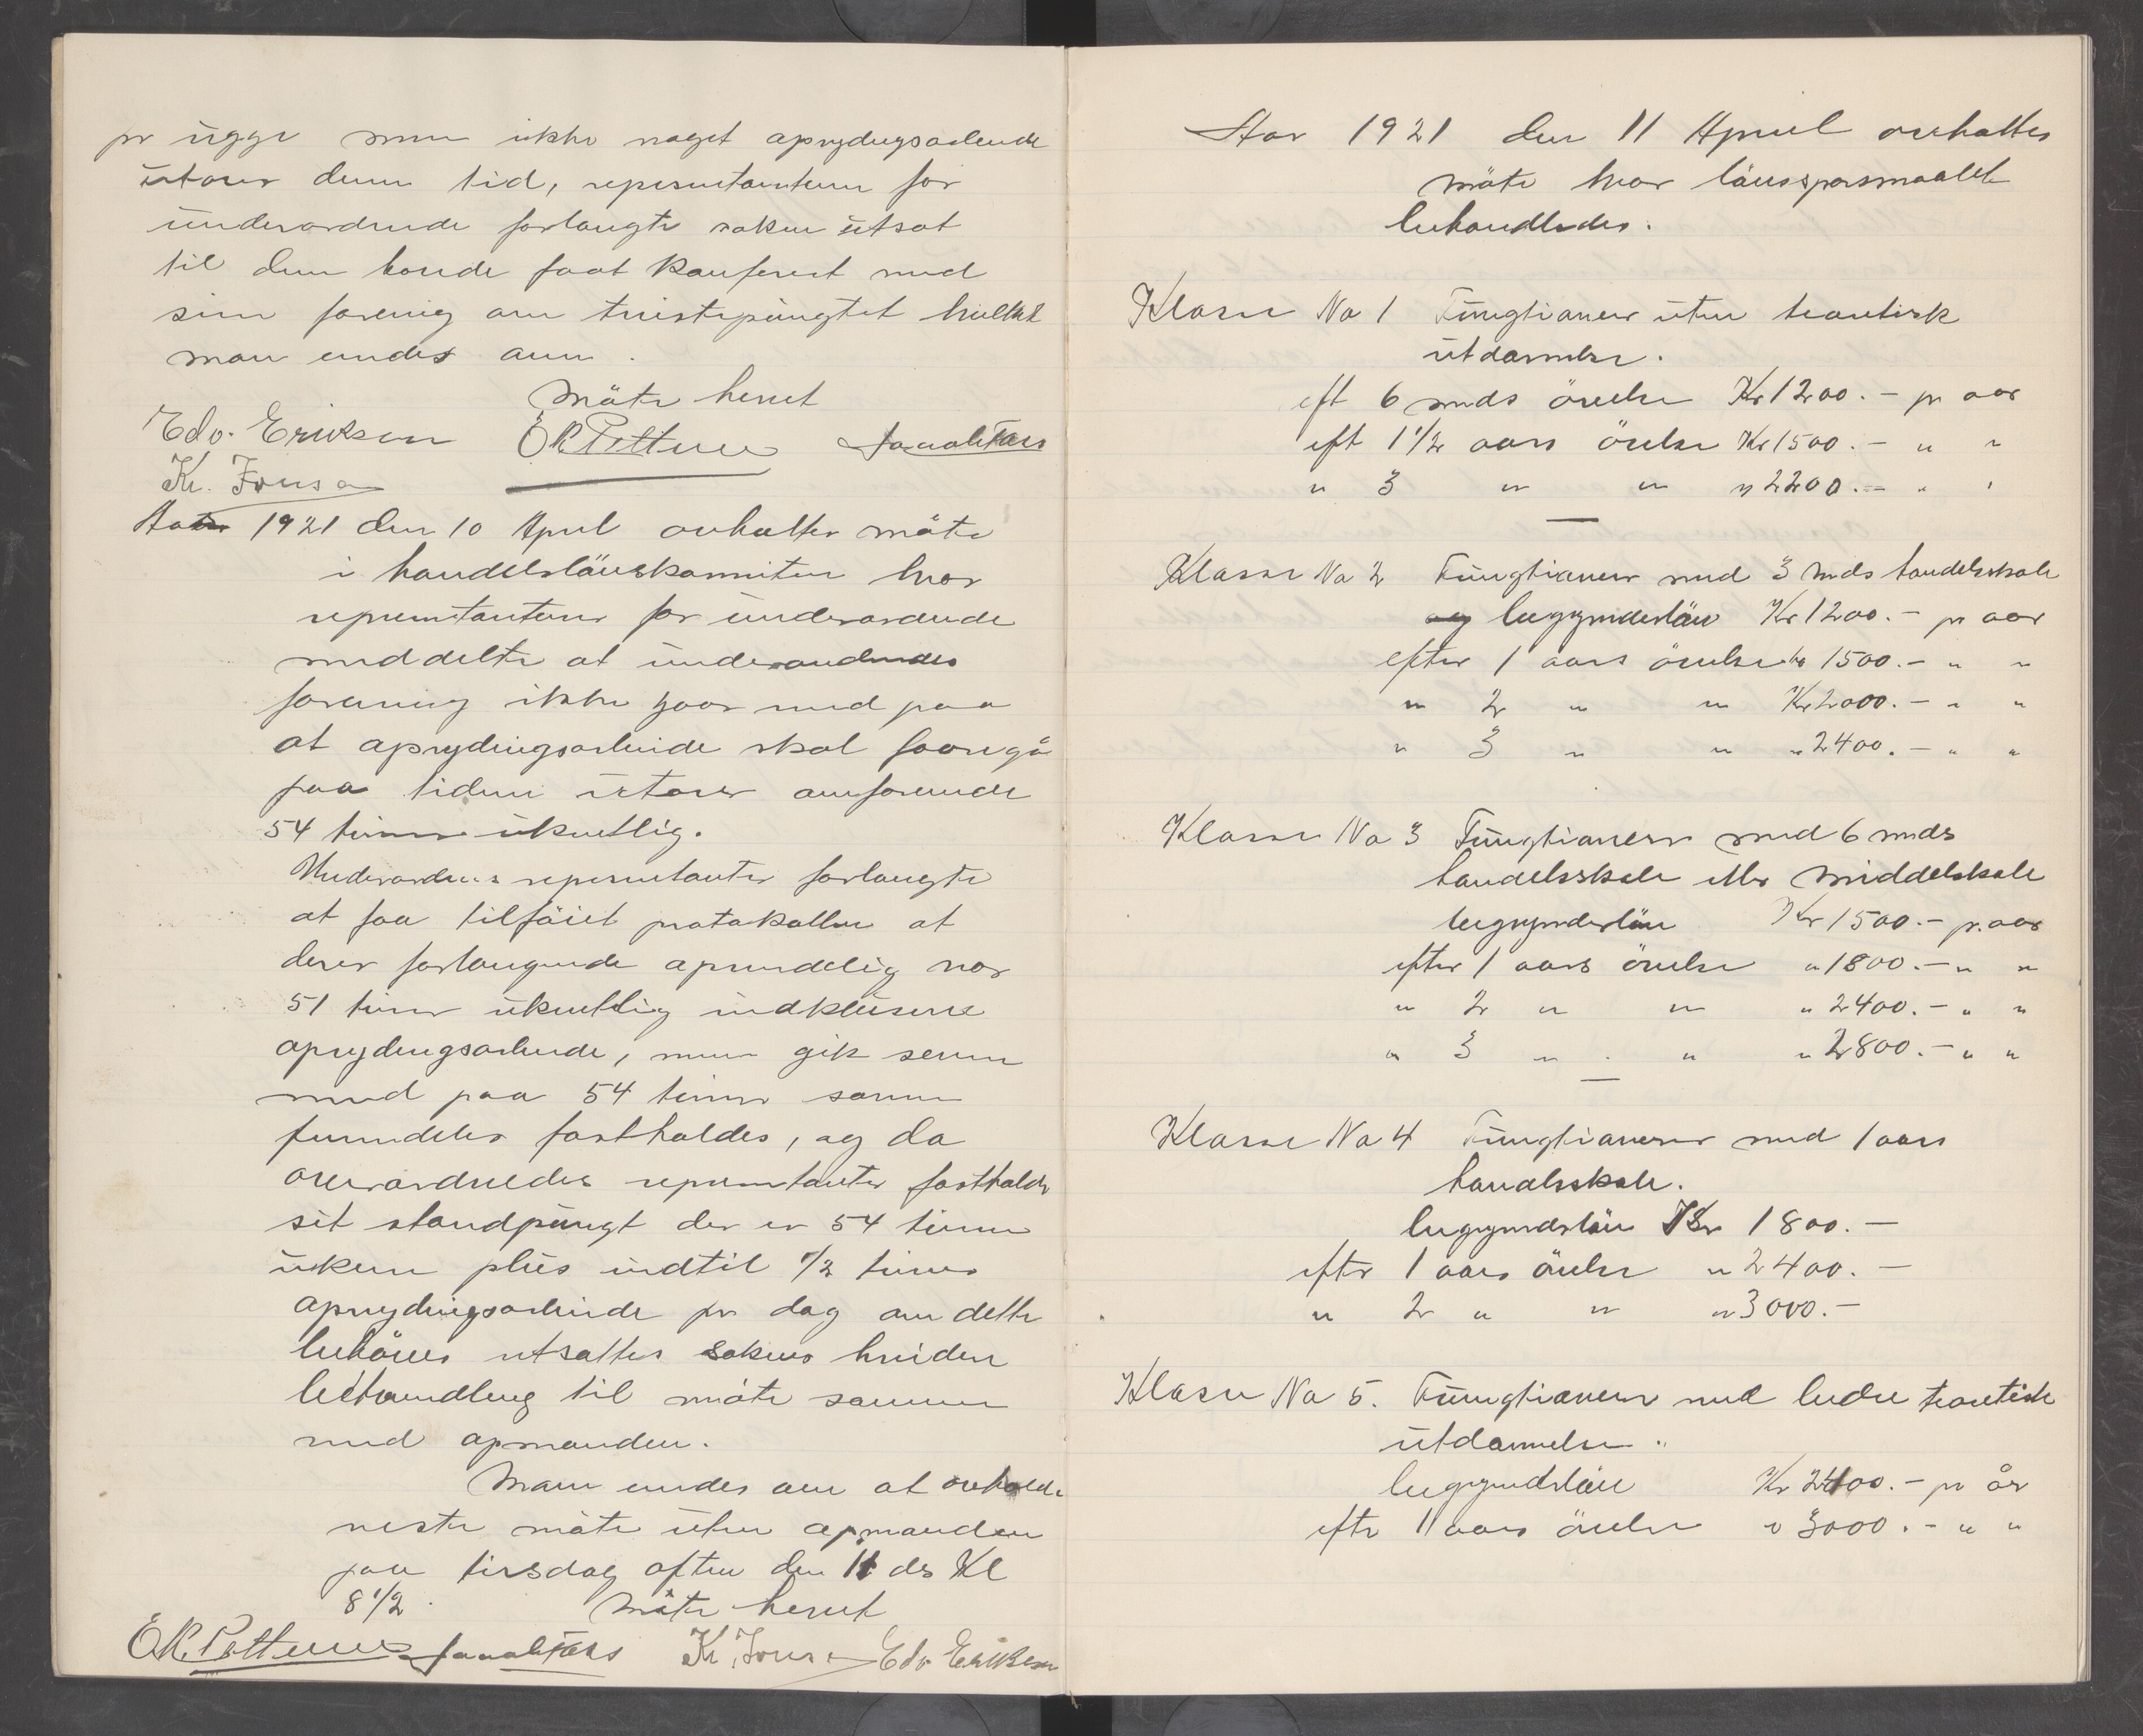 pr ugge men ikke noget oprydingsarbeide
utover denn tid, representanterne for
underordnede forlangte saken utsat
til den havde faat konferert med
sin forening om tvistepungtet hvilket
man enedes om.
Möte hevet
Edv. Eriksen OK Pettersen
Kr. Jonsen
Aar 1921 den 10 April avholtes möte
i handelslönskomiteen hvor
representanterne for underordnede
meddelte at underordnedes
forening ikke gaar med paa
at oprydingsarbeide skal foregå
paa tiden utover omforenede
54 timer ukentlig.
Underordnedes representanter forlangte
at faa tilföiet protokollen at
deres forlangende oprindelig var
51 timer ukentlig indklusive
oprydingsarbeide, men gik senere
med paa 54 timer som
fremdeles fastholdes, og da
overordnedes representanter fastholder
sit standpungt der er 54 timer
uken plus indtil 1/2 times
oprydingsarbeide pr dag om dette
behöves utsattes sakens videre
behandling til möte sammen
med opmanden.
Man enedes om at avholde
neste möte uten opmanden
paa tirsdag aften den 11 ds Kl
8 1/2. Möte hevet
OK. Pettersen Kr. Jonsen Edv Eriksen
Aar 1921 den 11 April avholtes
möte hvor lönsspörsmaalet
behandledes.
Klasse No 1 Fungtionerer uten teoretisk
utdannelse.
eft 6 mnds övelse Kr 1200.- pr aar
eft 1 1/2 aars övelse Kr 1500.- " "
" 3 " " " 2200.- " "
Klasse No 2 Fungtionerer med 3 mnds handelsskole
og begynderlön Kr 1200.- pr aar
efter 1 aars övelse kr 1500.- " "
" 2 " " Kr 2000.- " "
" 3 " " " 2400.- " "
Klasse No 3 Fungtionerer med 6 mnds
handelsskole eller middelskole
begynderlön Kr 1500.- pr. aar
efter 1 aars övelse " 1800.- " "
" 2 " " " 2400.- " "
" 3 " " " 2800.- " "
Klasse No 4 Fungtionerer med 1 aars
handelsskole.
begynderlön Kr 1800.-
efter 1 aars övelse " 2400.-
" 2 " " " 3000.-
Klasse No 5. Fungtionerer med bedre teoretisk
utdannelse.
begynderlön Kr 2400.- pr år
efter 1 aars övelse " 3000.- " "